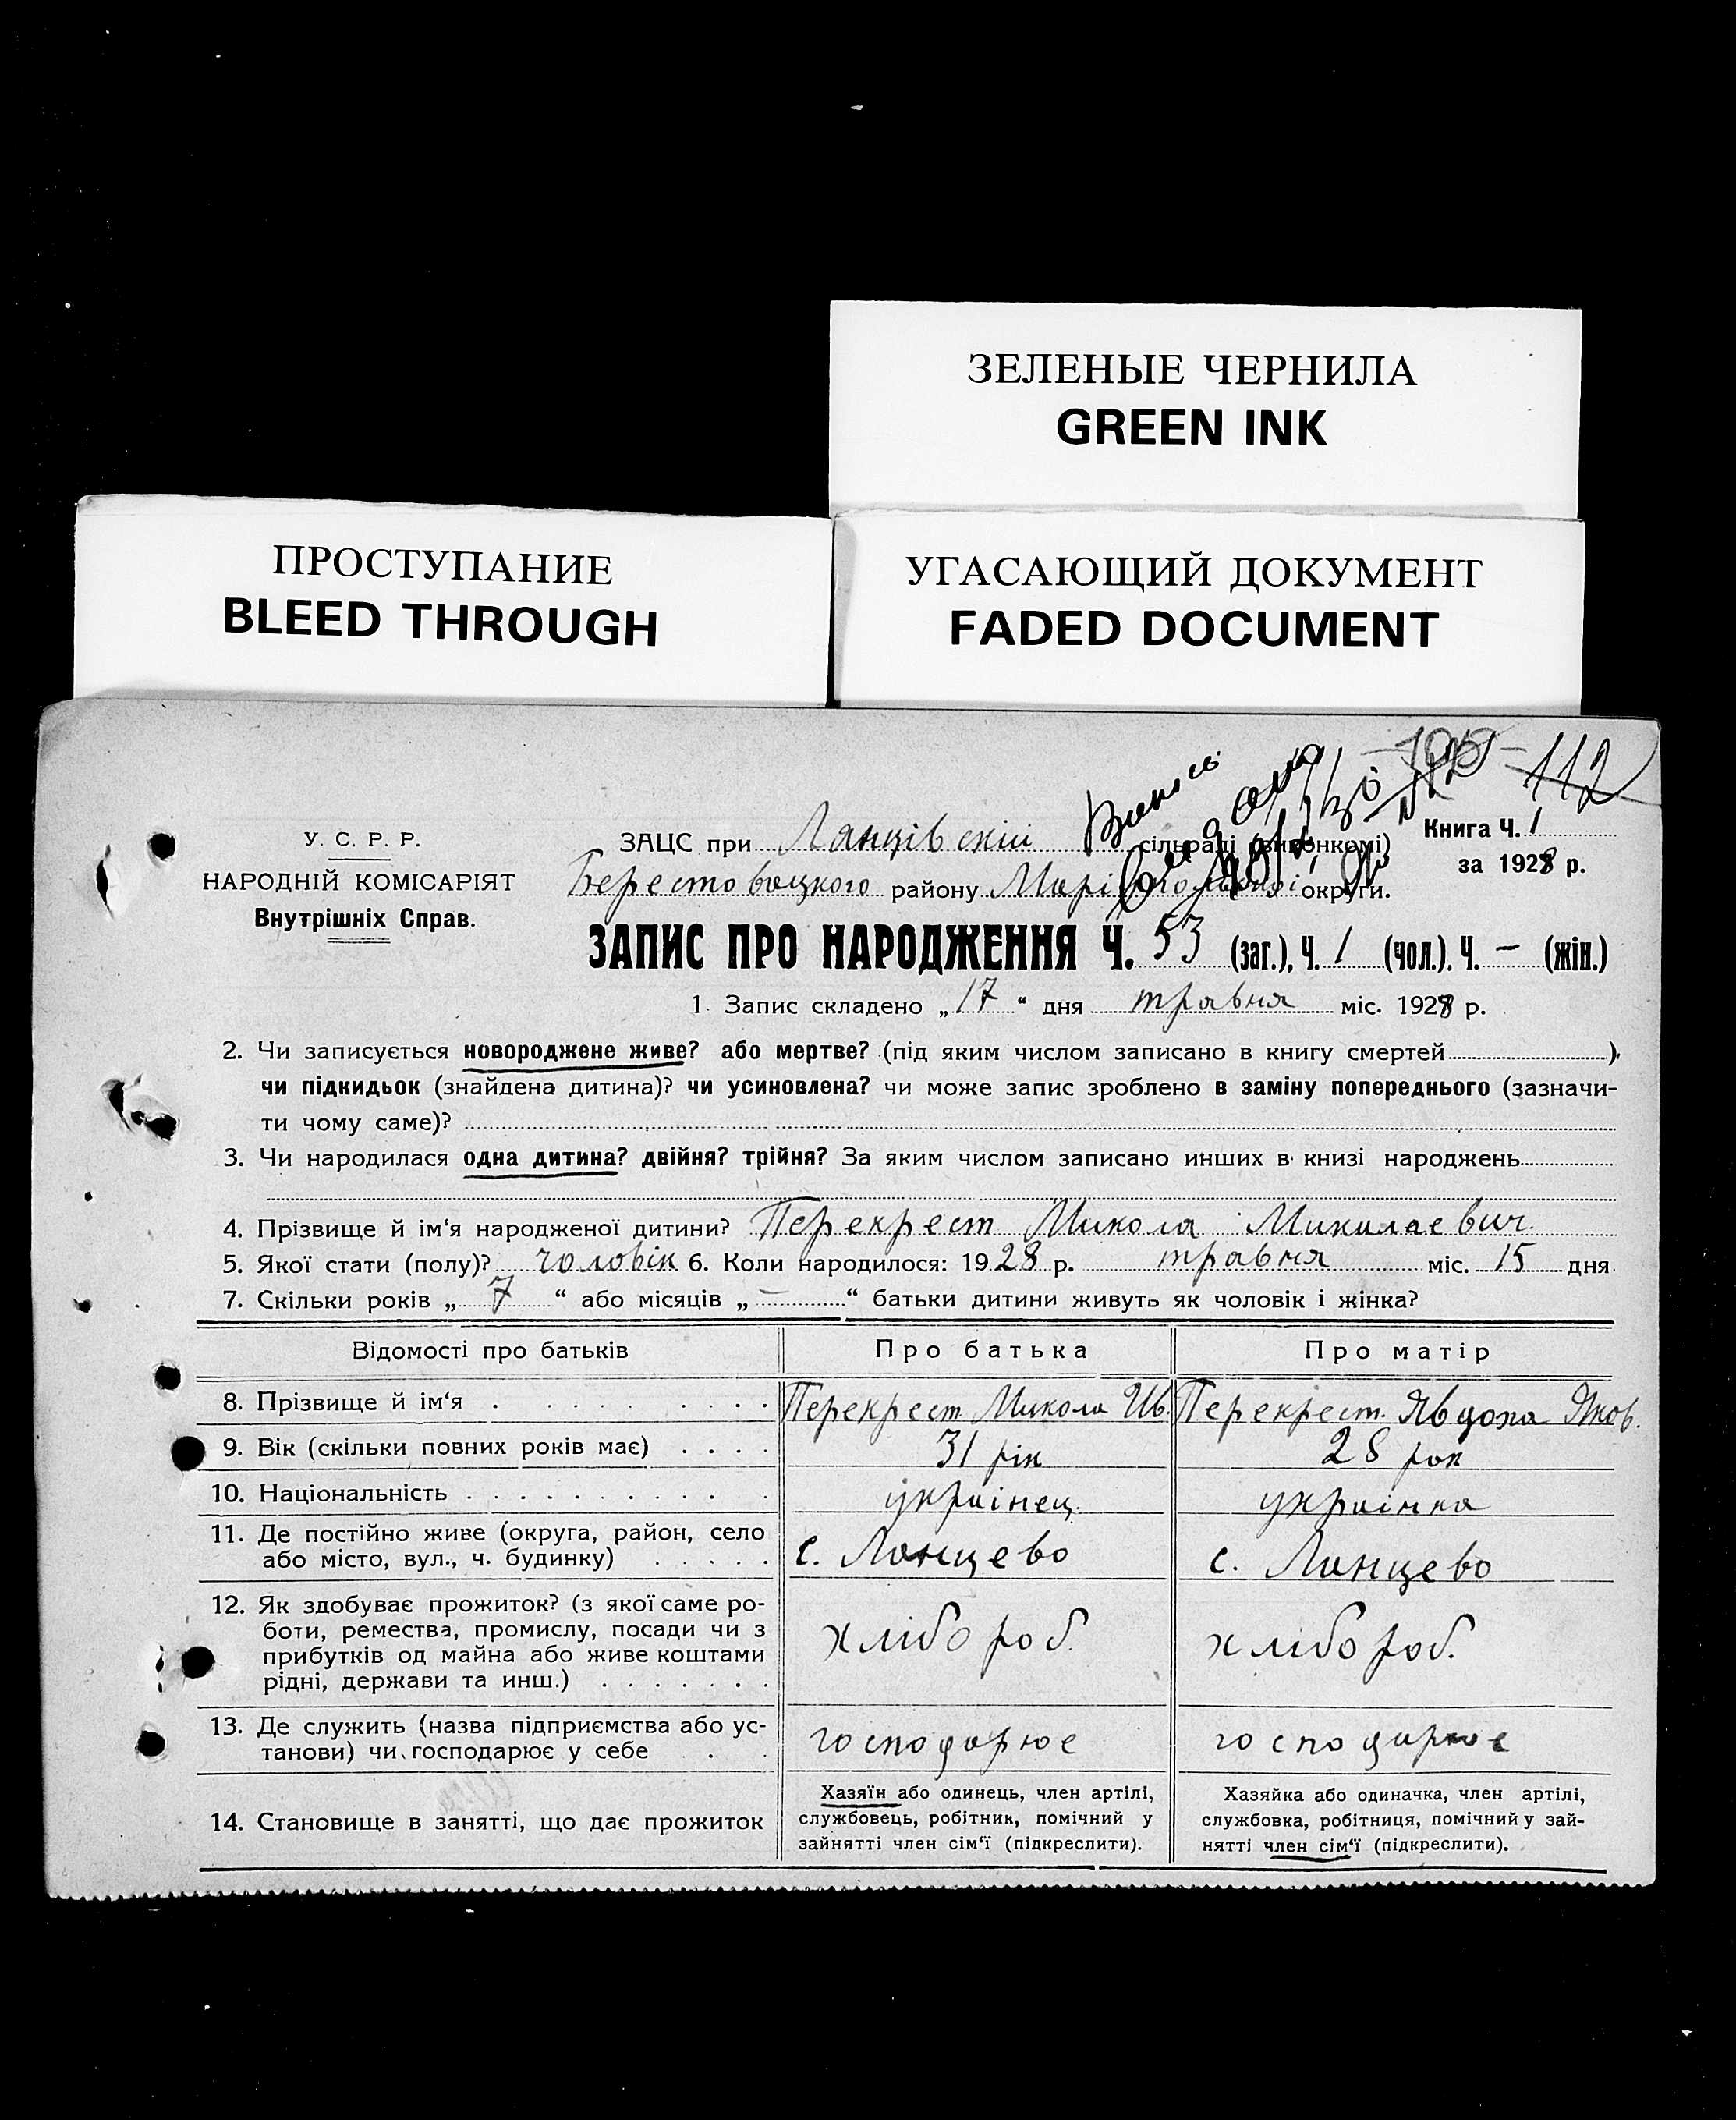 ЗЕЛЕНЫЕ ЧЕРНИЛА
GREEN INK
ПРОСТУПАНИЕ
BLEED THROUGH
УГАСАЮЩИЙ ДОКУМЕНТ
FADED DOCUMENT
112
У. С. Р. Р.
НАРОДНІЙ КОМІСАРІЯТ
Внутрішніх Справ.
ЗАЦС при Ланцівскій сільраді (виконкомі)
Берестовацкого району округи.
Книга Ч. 1
за 1928 р.
ЗАПИС ПРО НАРОДЖЕННЯ Ч. 53 (заг.), Ч. 1 (чол.). Ч. – (жін.)
1. Запис складено „17“ дня травня міс. 1928 р.
2. Чи записується новороджене живе? або мертве? (під яким числом записано в книгу смертей ),
чи підкидьок (знайдена дитина)? чи усиновлена? чи може запис зроблено в заміну попереднього (зазначи-
ти чому саме)?
3. Чи народилася одна дитина? двійня? трійня? За яким числом записано инших в книзі народжень
4. Прізвище й ім‘я народженої дитини? Перекрест Микола Миколаевич.
5. Якої стати (полу)? чоловік 6. Коли народилося: 1928 р. травня міс. 15 дня
7. Скільки років „ 7 “ або місяців „ – “ батьки дитини живуть як чоловік і жінка?
Відомості про батьків Про батька Про матір
8. Прізвище й ім‘я Перекрест Микола Ив. Перекрест Явдоха Яков.
9. Вік (скільки повних років має) 31 рік 28 рок
10. Національність українец. українка
11. Де постійно живе (округа, район, село
або місто, вул., ч. будинку) с. Ланцево с. Ланцево
12. Як здобуває прожиток? (з якої саме ро-
боти, ремества, промислу, посади чи з
прибутків од майна або живе коштами
рідні, держави та инш.) хлібороб. хлібороб.
13. Де служить (назва підприємства або ус-
танови) чи господарює у себе господарює господарює
14. Становище в занятті, що дає прожиток
Хазяїн або одинець, член артілі,
службовець, робітник, помічний у
зайнятті член сім‘ї (підкреслити).
Хазяйка або одиначка, член артілі,
службовка, робітниця, помічний у зай-
нятті член сім‘ї (підкреслити).